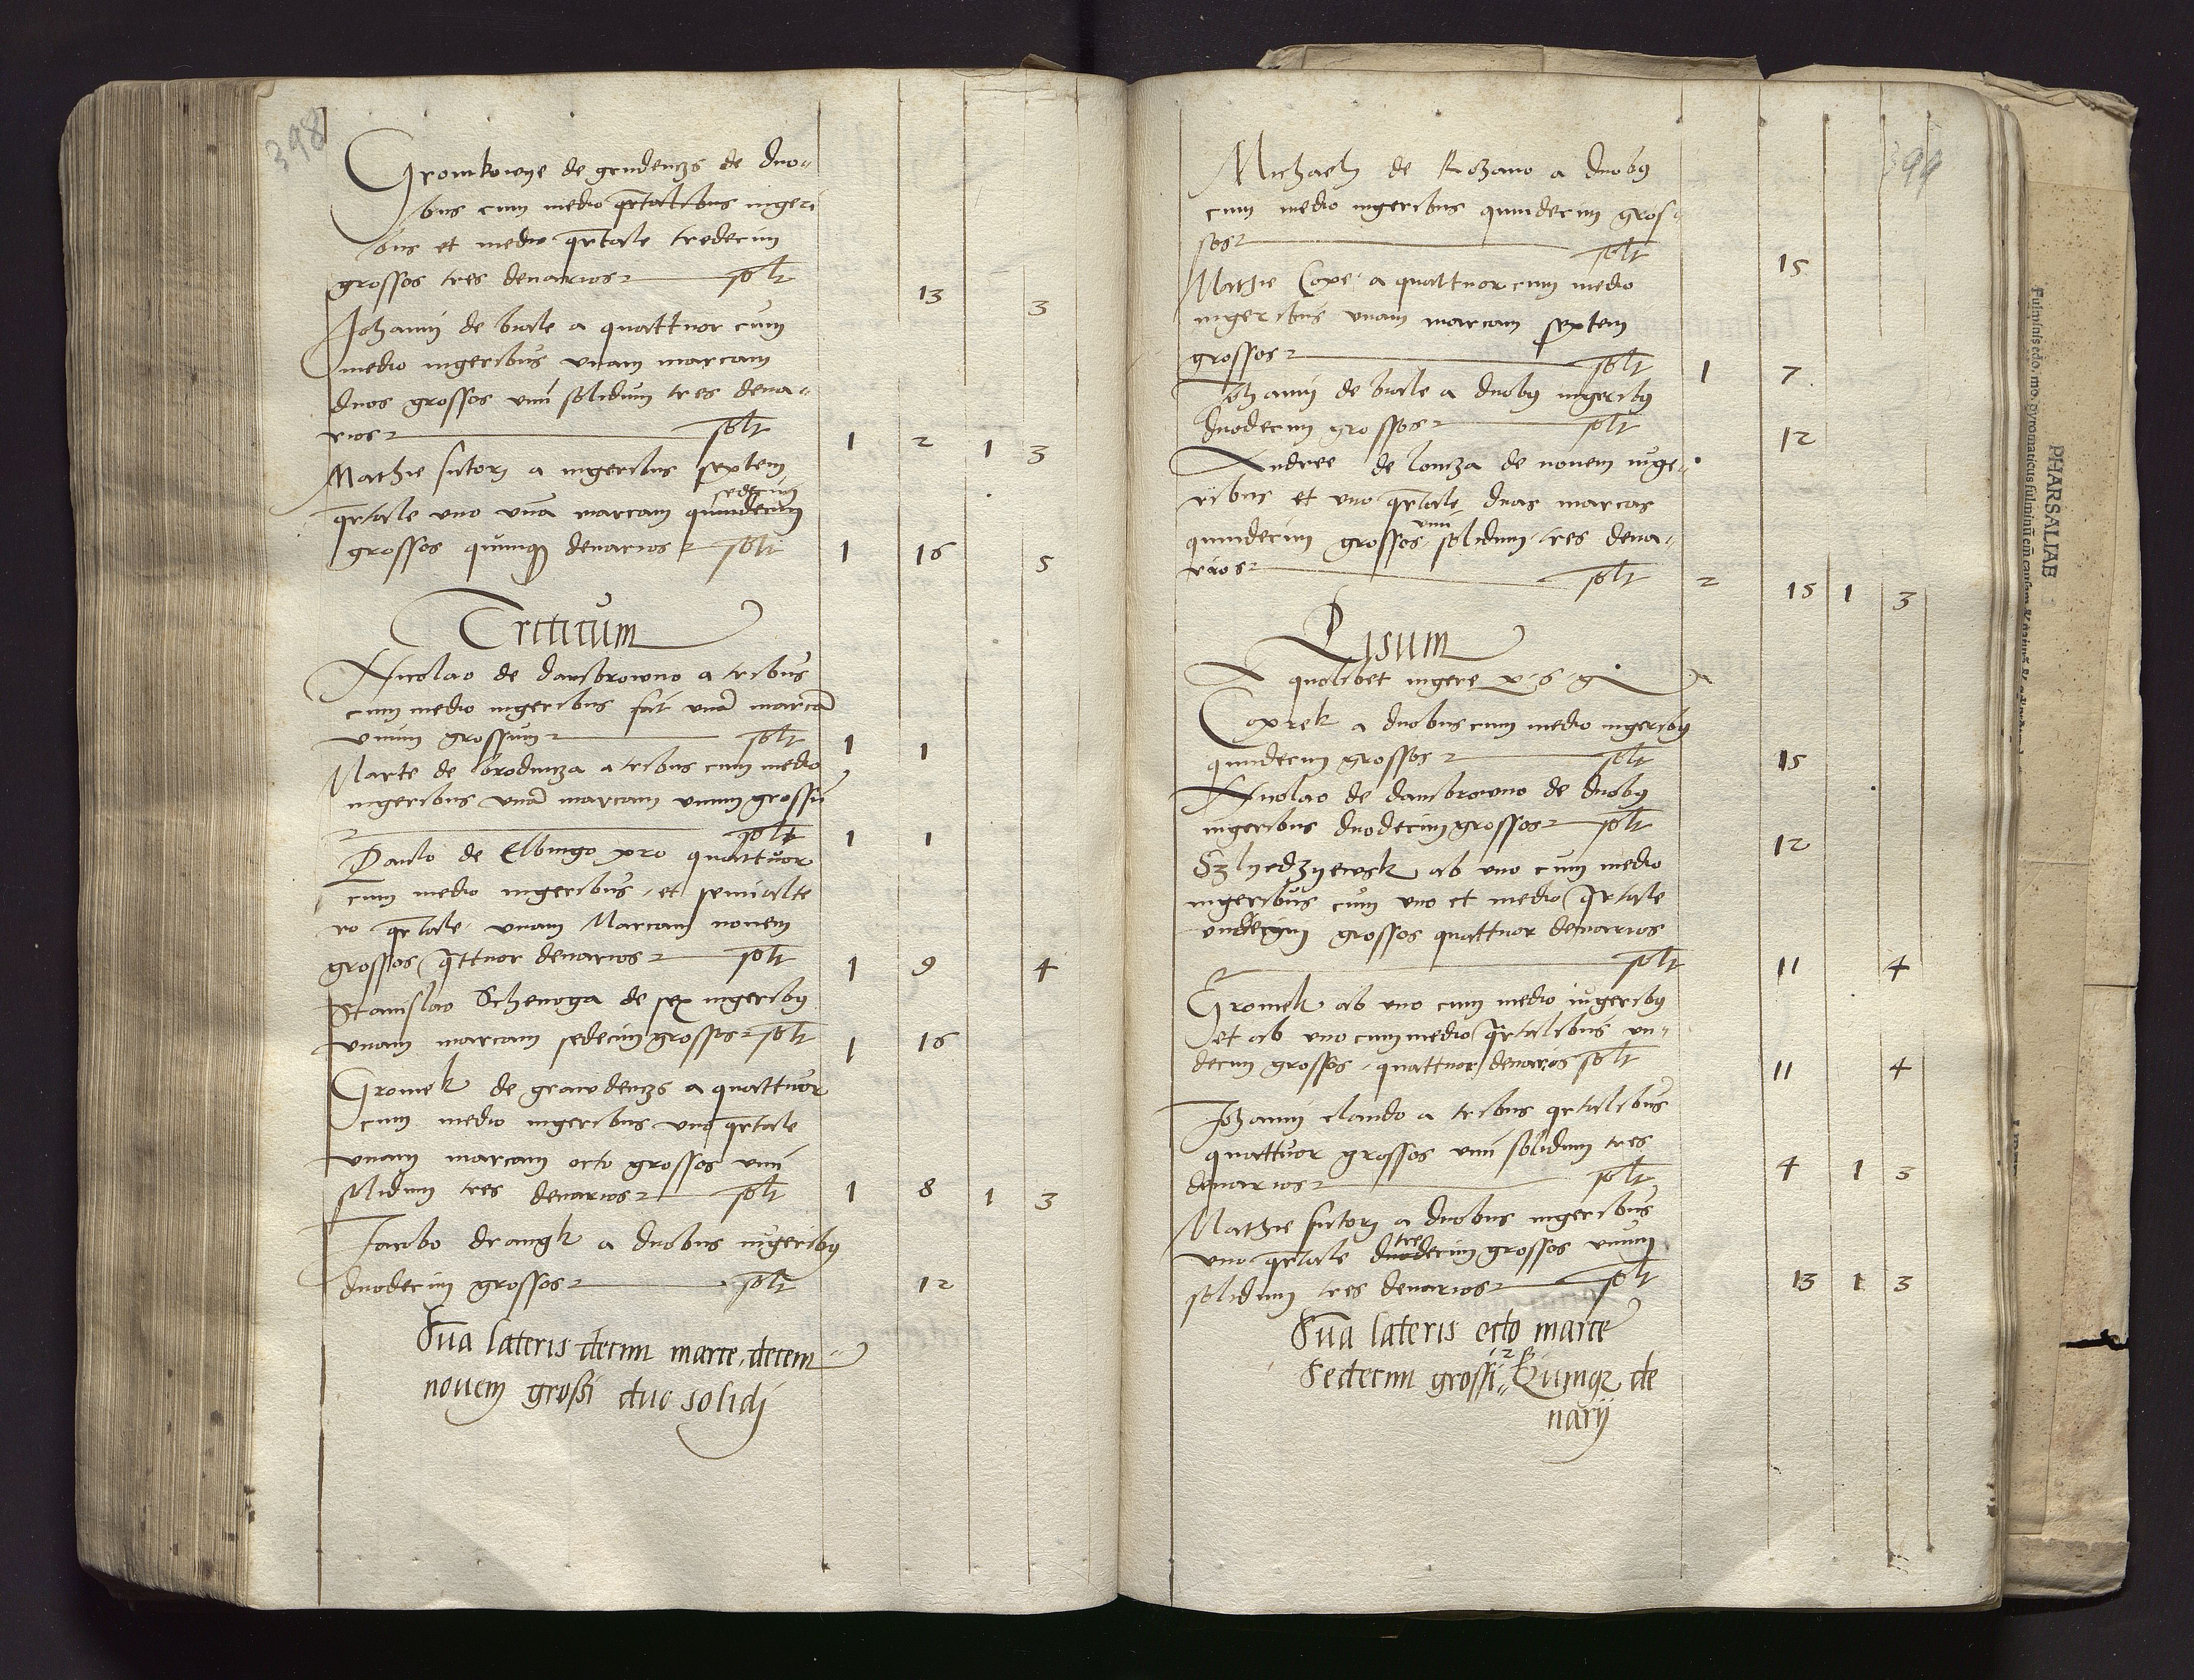 398
Gromkowye de grudenczs de duo-
bus cum medio qrtalibus iugeri
bus et medio qrtale tredecim
grossos tres denarios solt 13 3
Johanni de biale a quattuor cum
medio iugeribus unam marcam
duos grossos unu solidum tres dena-
rios solt 1 2 1 3
Mathie sutori a iugeribus septem
sedecim
qrtale uno una marcam quindecim
grossos quinq denarios solt 1 16 5
Triticum
Nicolao de dambrowno a tribus
cum medio iugeribus fat una marca
unum grossum solt 1 1
Marte de brodnicza a tribus cum medio
iugeribus una marcam unum grossu
solt 1 1
Paulo de Elbingo pro quattuor
cum medio iugeribus et semialte
ro qrtale unam Marcam nonem
grossos qttuor denarios solt 1 9 4
Stanislao Schenoga de sex iugeriby
unam marcam sedecim grossos solt 1 16
Gromek de grawdenczs a quattuor
cum medio iugeribus uno qrtale
unam marcam octo grossos unu
solidum tres denarios solt 1 8 1 3
Jacobo drangk a duobus iugeriby
duodecim grossos solt 12
Sua lateris decim marce decem
novem grossi duo solidj
399
Michaeli de Rozano a duoby
cum medio iugeribus quindecim gros
sos solt 15
Mathie Coxe a quattuor cum medio
iugeribus unam marcam septem
grossos solt 1 7
Johanni de biale a duoby iugeriby
duodecim grossos solt 12
Andree de lomza de novem iuge-
ribus et uno qrtale duas marcas
unu
quindecim grossos solidum tres dena-
rios solt 2 15 1 3
Pisum
A quolibet iugere
Coxrek a duobus cum medio iugeriby
quindecim grossos solt 15
Nicolao de dambrowno de duoby
iugeribus duodecim grossos solt 12
Szlyedzyewsk ab uno cum medio
iugeribus cum uno et medio qrtale
undecim grossos quattuor denarios
solt 11 4
Gromek ab uno cum medio iugeriby
et ab uno cum medio qrtalibus un-
decim grossos quattuor denarios solt 11 4
Johanni claudo a tribus qrtalibus
quattuor grossos unu solidum tres
denarios solt 4 1 3
Mathie sutori a duobus iugeribus
tre
uno qrtale duodecim grossos unum
solidum tres denarios solt 13 1 3
Sua lateris octo marce
Sedecim grossi Quinq de
narij
PHARSALIAE